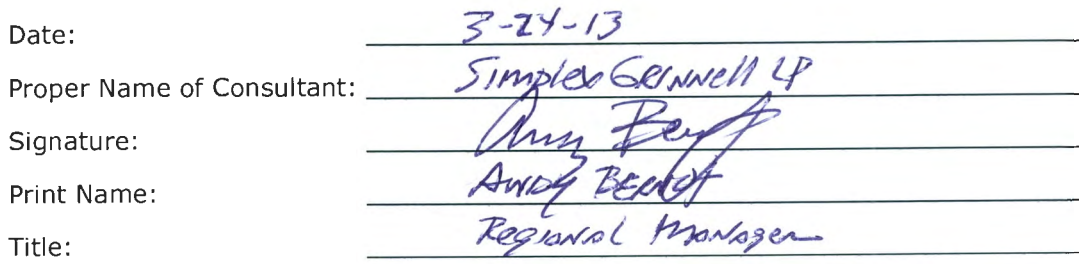 Date: 3-24-13
Proper Name of Consultant: Simplex Grinnell LP
Signature: Andy Berndt
Print Name: Andy Berndt
Title: Regional Manager